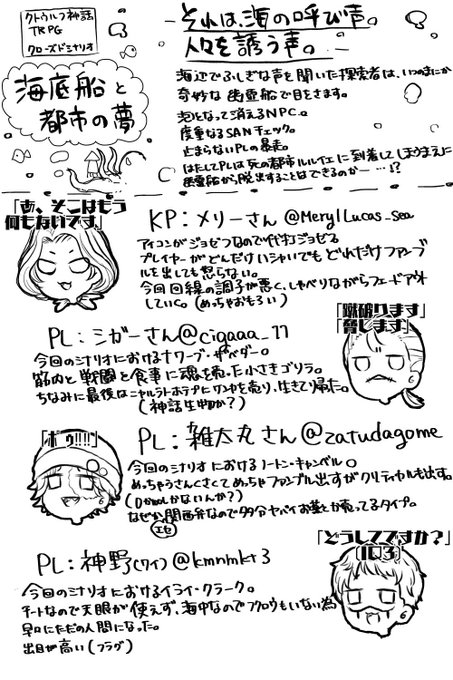 クトゥルフ神話
TRPG
クローズドシナリオ
海底船と
都市の夢
それは、海の呼び声。
人々を誘う声。
海辺でふしぎな声を聞いた探索者は、いつのまにか
奇妙な幽霊船で目をさます。
泡となって消えるNPC。
度重なるSANチェック。
止まらないPLの暴走。
はたしてPLは死の都市ルルイエに到着してしまうまえに
幽霊船から脱出することはできるのか……!?
「あ、そこはもう
何もないです。」
KP:メリーさん @MerylLucas_sea
アイコンがジョゼフなので代打ジョゼフ
プレイヤーがどんだけIシャいてもどれだけファンブ
ルを出しても怒らない。
今回回線の調子が悪く、しゃべりながらフェードアウト
していく。(めっちゃおもろい)
「蹴破ります」
「脅します」
PL:シガーさん@cigaaa_77
今回のシナリオにおけるナワーブ・サベダー。
筋肉と戦闘と食事に魂を売った小さきゴリラ。
ちなみに最後はニャルラトホテプにワンパを売り、生きて帰った。
(神話生物か?)
「ボゥ!!!!」
PL:雑太丸さん@zatudagome
今回のシナリオにおけるノートン・キャンベル。
めっちゃうんさくさくてめっちゃファンブル出すがクリティカルも出す。
(0か100しかないんか?)
なぜか関西弁なので多分ヤバイお薬とか売ってるタイプ。
エセ
「どうしてですか?」
(IQ3)
PL:神野(ワイ)@kmnmkt3
今回のシナリオにおけるイライ・クラーク。
チートなので天眼が使えず、海中なのでフクロウもいない為
早々にただの人間になった。
出目が高い(フラグ)